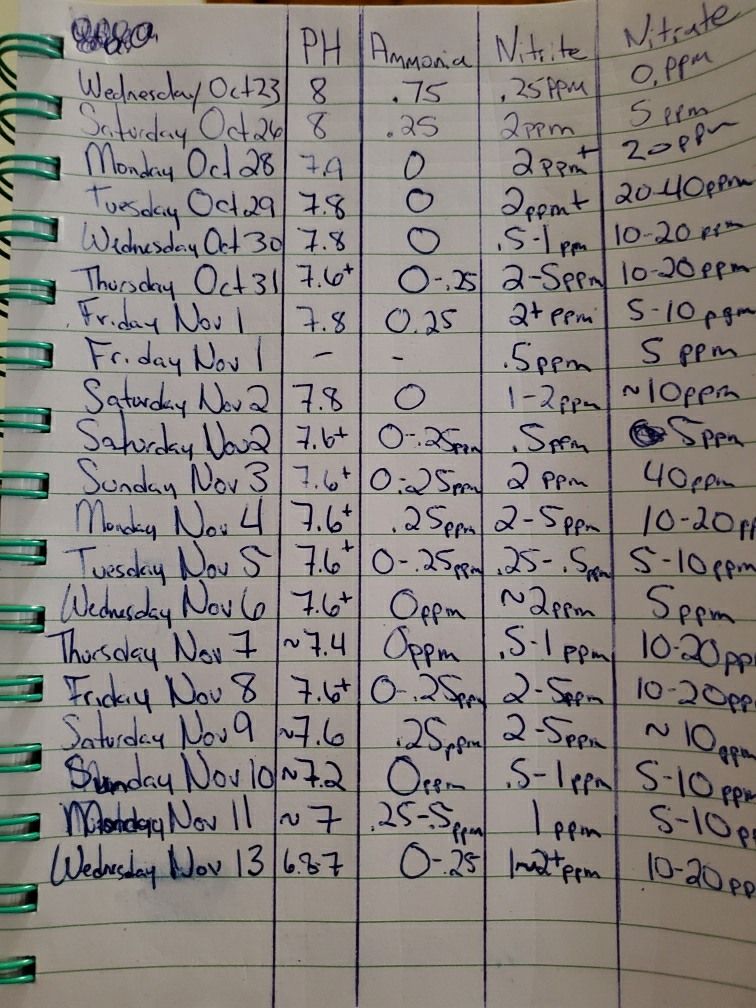 PH Ammonia Nitrite Nitrate
Wednesday Oct 23 8 .75 .25ppm 0.ppm
Saturday Oct 26 8 .25 2ppm 5ppm
Monday Oct 28 7.9 0 2ppm+ 20ppm
Tuesday Oct 29 7.8 0 2ppm+ 20-40ppm
Wednesday Oct 30 7.8 0 .5-1ppm 10-20ppm
Thursday Oct 31 7.6+ 0-.25 2-5ppm 10-20ppm
Friday Nov 1 7.8 0.25 2+ppm 5-10ppm
Friday Nov 1 - - .5ppm 5 ppm
Saturday Nov 2 7.8 0 1-2ppm ~10ppm
Saturday Nov 2 7.6+ 0-.25ppm .5ppm 5ppm
Sunday Nov 3 7.6+ 0-.25ppm 2 ppm 40ppm
Monday Nov 4 7.6+ .25ppm 2-5ppm 10-20pp
Tuesday Nov 5 7.6+ 0-.25ppm .25-.5ppm 5-10ppm
Wednesday Nov 6 7.6+ 0ppm ~2ppm 5ppm
Thursday Nov 7 ~7.4 0ppm .5-1ppm 10-20pp
Friday Nov 8 7.6+ 0-.25ppm 2-5ppm 10-20pp
Saturday Nov 9 ~7.6 .25ppm 2-5ppm ~10ppm
Sunday Nov 10 ~7.2 0ppm .5-1ppm 5-10ppm
Monday Nov 11 ~7 .25-.5ppm 1ppm 5-10p
Wednesday Nov 13 6.8-7 0-.25 1-2+ppm 10-20pp